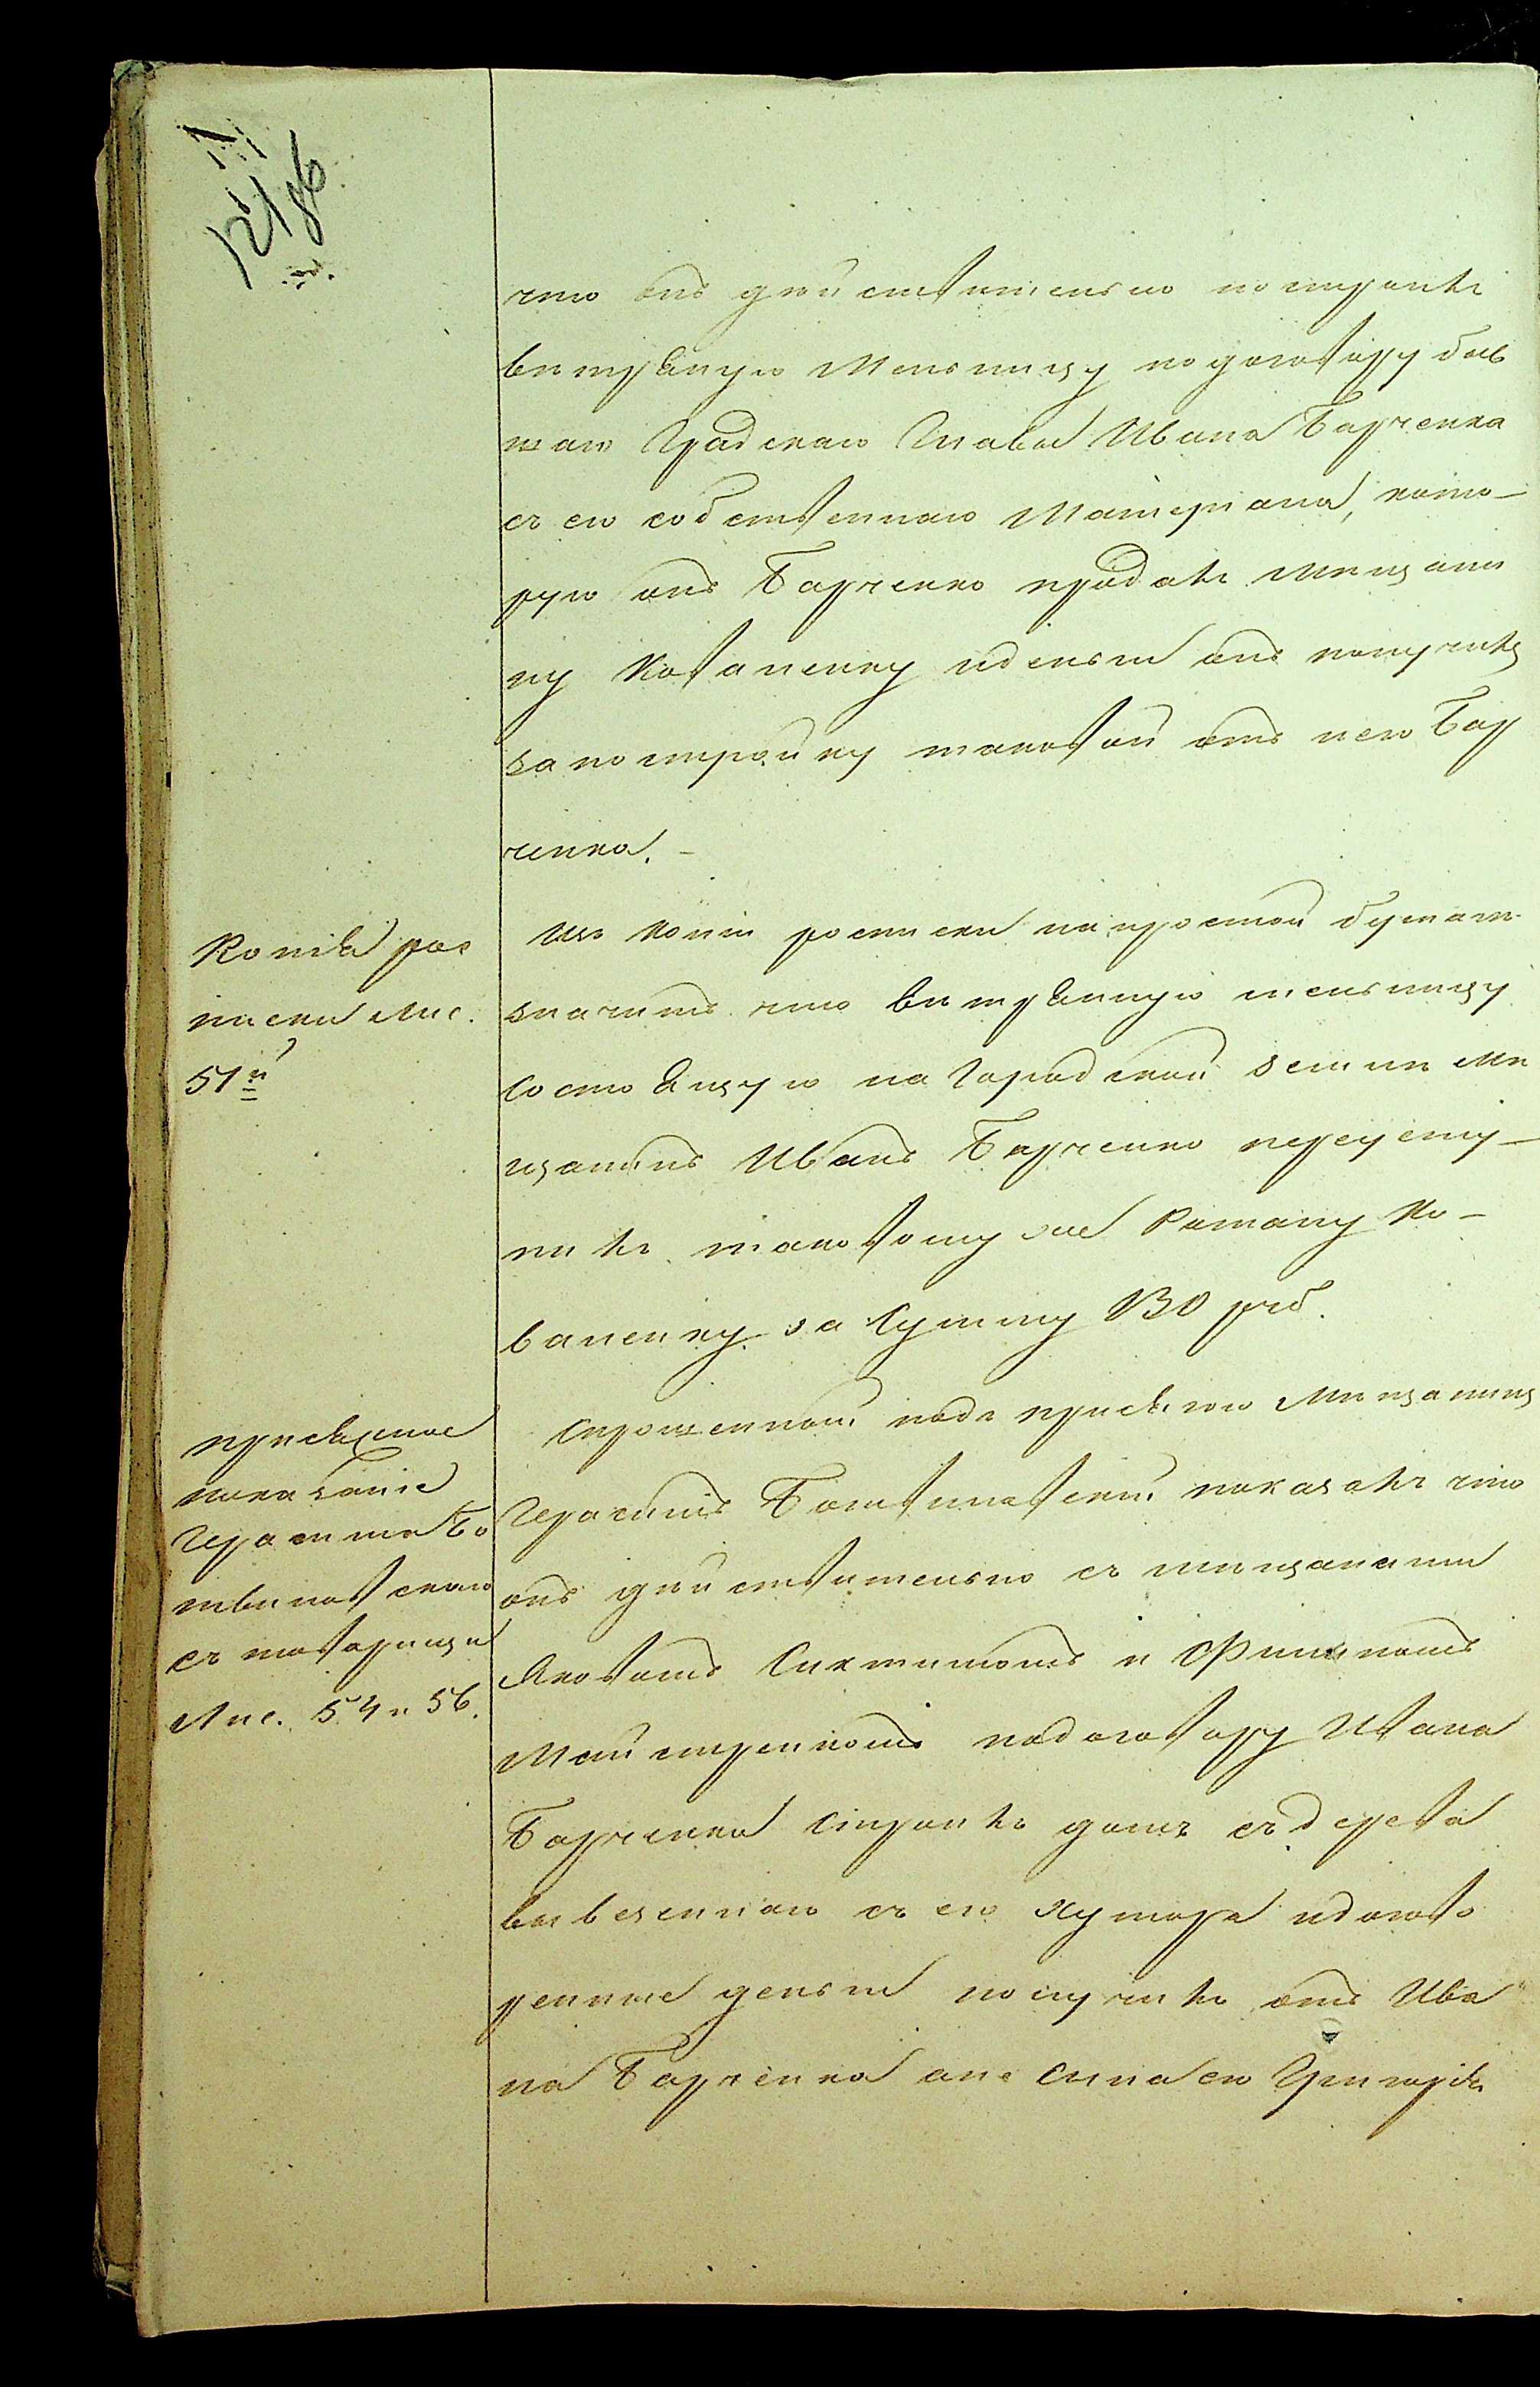 что онъ действительно построилъ
витряную Мельницу подоговору быв
шаго Градскаго Главы Ивана Барченка
съ его собственнаго Матеріала, кото-
рую онъ Барченко продалъ Мещани
ну Коваленку иденьги онъ получилъ
запостройку таковой отъ него Бар
ченка. -
Копія рос
писки Лис.
51й
Изъ Копіи росписки на простой бумаге
значитъ что витряную мельницу
состоящую на Городской земле Ме
щанинъ Иванъ Барченко переусту-
пилъ таковому же Роману Ко-
валенку за Сумму 130 руб.
присяжное
показаніе
Герасима Бо
твиновскаго
съ товарищи
Лис. 54 и 56.
Спрошенной подъ присягою Мещанинъ
Герасимъ Ботвиновскій показалъ что
онъ действительно съ мещанами
Яковомъ и Филипомъ
Майстренкомъ подоговору Ивана
Барченка строилъ домъ съ дерева
вывезеннаго съ его хутора идогово
ренные деньги получилъ отъ Ива
на Барченка ане сына его Григорія